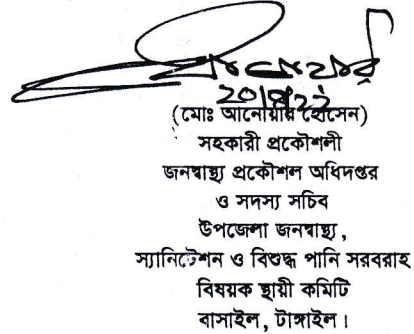 ২০/৪/২২
(মোঃ আনোয়ার হোসেন)
সহকারী প্রকৌশলী
জনস্বাস্থ্য প্রকৌশল অধিদপ্তর
ও সদস্য সচিব
উপজেলা জনস্বাস্থ্য,
স্যানিটেশন ও বিশুদ্ধ পানি সরবরাহ
বিষয়ক স্থায়ী কমিটি
বাসাইল, টাঙ্গাইল।